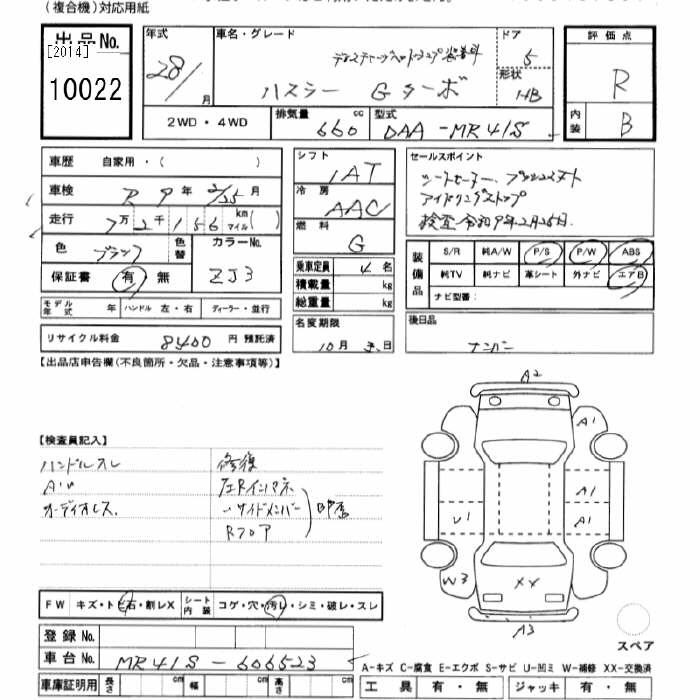 (複合機)対応用紙
出品No.
[2014]
10022
年式
28/
月
車名・グレード
ハスラー Gターボ
ドア
5
形状
HB
評価点
R
内装
B
2WD・4WD
排気量
660
cc
型式
DAA-MR41S
車歴 自家用・( )
車検 R 9年 2/25月
走行 7万2千156 km マイル( )
色 ブラック
色替
カラーNo.
ZJ3
保証書 有・無
シフト
IAT
冷房
AAC
燃料
G
乗車定員 4名
積載量 kg
総重量 kg
セールスポイント
シートヒーター、
アイドリングストップ
検査 令和9年2月25日.
装備品
S/R 純A/W P/S P/W ABS
純TV 純ナビ 革シート 外ナビ エアB
ナビ型番:
モデル年式 年 ハンドル 左・右 ディーラー・並行
リサイクル料金 8400円 預託済
名変期限
10月 日
後日品
ナンバー
【出品店申告欄(不良箇所・欠品・注意事項等)】
【検査員記入】
ハンドルスレ
A/W
オーディオレス.
修復
左Rインマネ
〃サイドメンバー
Rフロア
A2
A1
A1
A1
U1
W3
XX
A3
スペア
FW キズ・トビ石・割レX シート内装 コゲ・穴・汚レ・シミ・破レ・スレ
登録No.
車台No. MR41S-606523
車庫証明用 長さ cm 幅 cm 高さ cm
A-キズ C-腐食 E-エクボ S-サビ U-凹ミ W-補修 XX-交換済
工具 有・無 ジャッキ 有・無